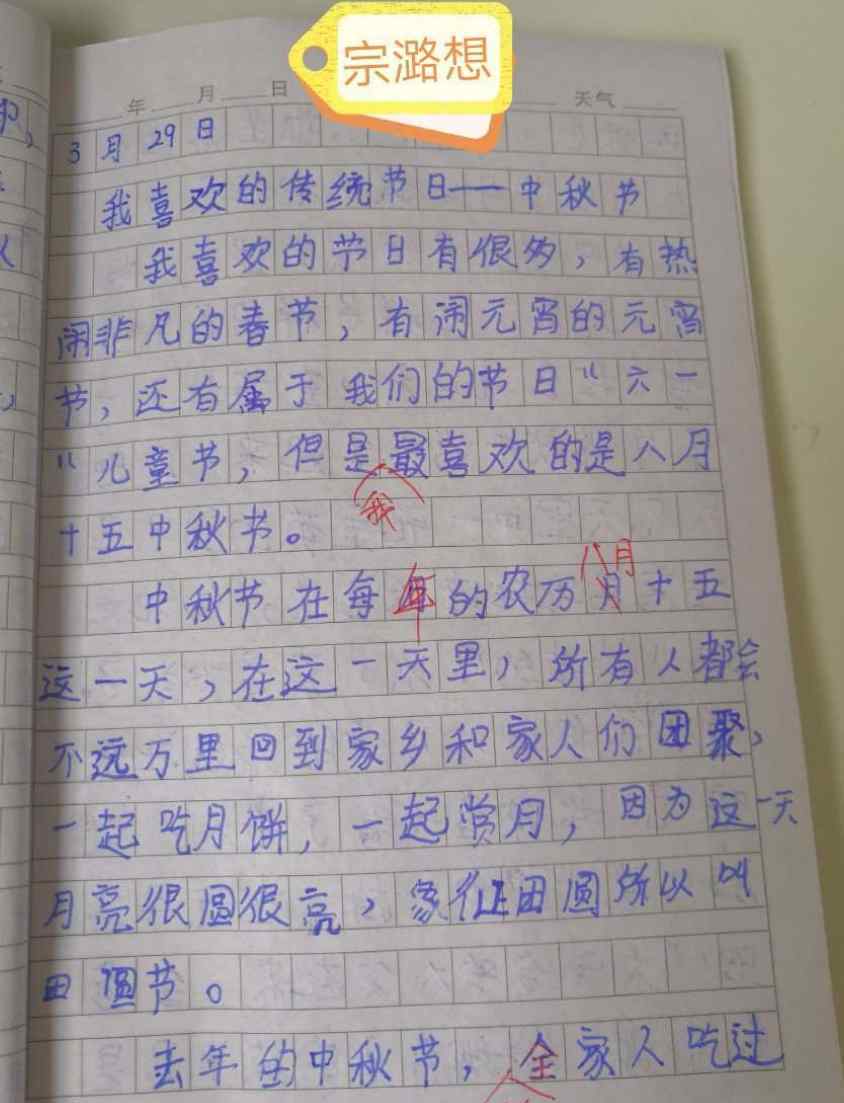 宗潞想
年 月 日 天气
3月29日
我喜欢的传统节日——中秋节
我喜欢的节日有很多，有热
闹非凡的春节，有闹元宵的元宵
节，还有属于我们的节日“六一
“儿童节，但是最喜欢的是八月
我
十五中秋节。
八月
中秋节在每年的农历月十五
这一天，在这一天里，所有人都会
不远万里回到家乡和家人们团聚，
一起吃月饼，一起赏月，因为这一天
月亮很圆很亮，象征田圆所以叫
田圆节。
去年的中秋节，全家人吃过